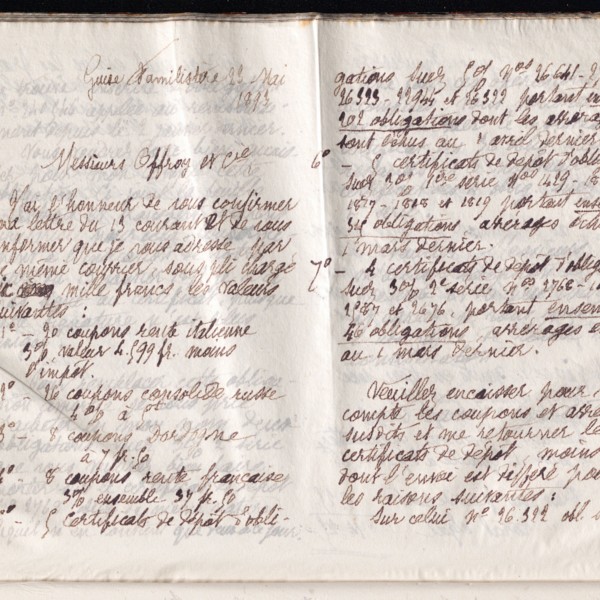 Guise Familistère 23 Mai
Messieurs Offroy et Cie
J'ai l'honneur de vous confirmer
ma lettre du 13 courant et de vous
informer que je vous adresse, par
ce même courrier, sous pli chargé
mille francs, les valeurs
suivantes :
1° - 20 coupons rente italienne
valeur 4.599 fr. moins
l'impôt.
coupons consolidé russe
4 % à
8 coupons Dordogne
à 7 fr. 50
8 coupons rente française
3% ensemble 37 fr. 50
5 certificats de dépôt d'obli-
gations Suez 5% Nos 26641-2
26323-22944 et 26322 portant en
202 obligations dont les arrérages
sont échus au 1 avril dernier
6° - 5 certificats de dépôt d'obli
Suez 3% 1ère série Nos
1817-1818 et 1819 portant ens
obligations arrérages échu
1 mars dernier.
7° - 4 certificats de dépôt d'oblig
Suez 3% 2e série, Nos 2766-
et 2676, portant ensem
46 obligations, arrérages é
au 1 mars dernier.
Veuillez encaisser pour
compte les coupons et arré
susdits et me retourner le
certificats de dépôt, moins
dont l'envoi est différé po
les raisons suivantes :
Sur celui N° 26.322 obl.